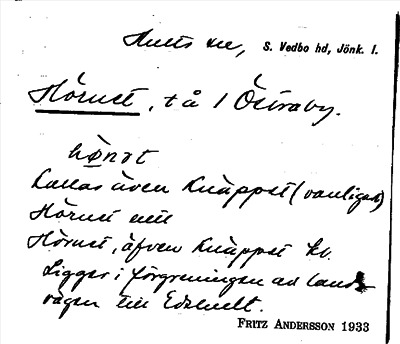 Hults sn, S. Vedbo hd, Jönk. l.
Hörnet, tå 1 Östraby.
hö̀nət
Kallas även Knäppet (vanligast)
Hörnet
Hörnet, äfven Knäppet
Ligger i förgreningen av lands-
vägen till Edshult.
FRITZ ANDERSSON 1933